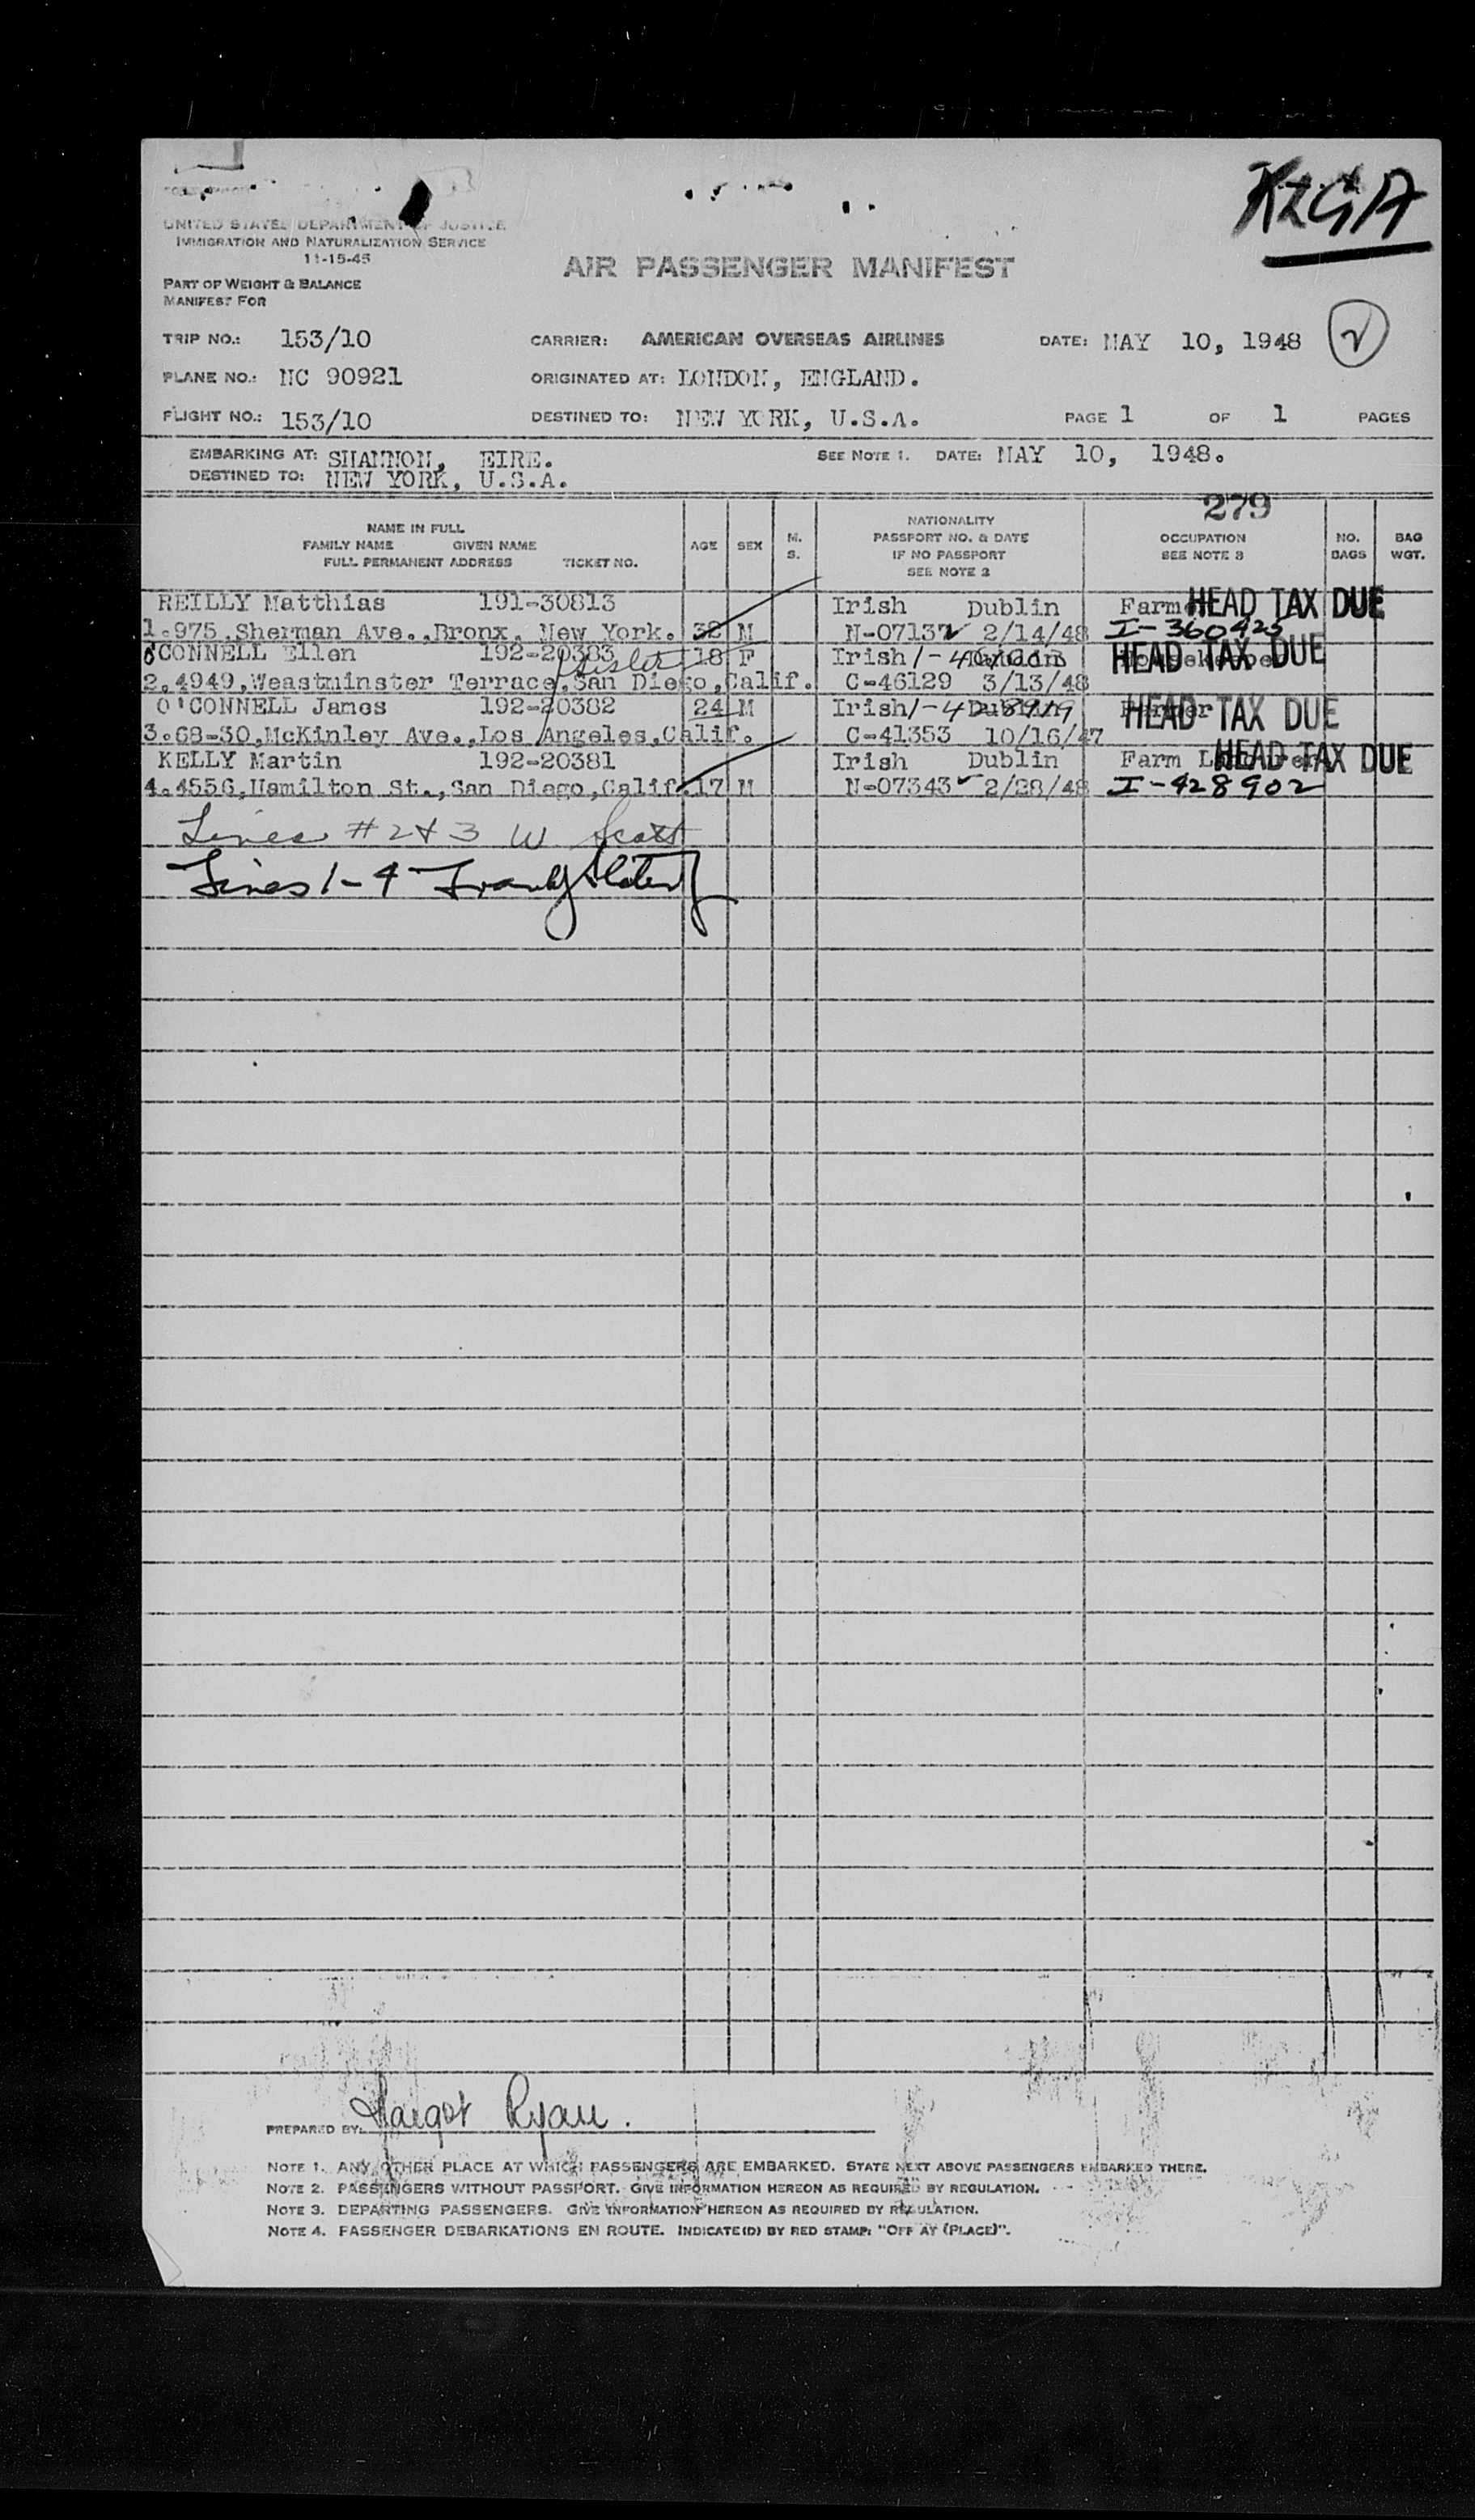 K2GA
UNITED STATES DEPARTMENT OF JUSTICE
IMMIGRATION AND NATURALIZATION SERVICE
11-15-45
AIR PASSENGER MANIFEST
PART OF WEIGHT & BALANCE
MANIFEST FOR
TRIP NO.: 153/10 CARRIER: AMERICAN OVERSEAS AIRLINES DATE: MAY 10, 1948
PLANE NO.: NC 90921 ORIGINATED AT: LONDON, ENGLAND.
FLIGHT NO.: 153/10 DESTINED TO: NEW YORK, U.S.A. PAGE 1 OF 1 PAGES
EMBARKING AT: SHANNON, EIRE. SEE NOTE 1. DATE: MAY 10, 1948.
DESTINED TO: NEW YORK, U.S.A.
279
NAME IN FULL
FAMILY NAME GIVEN NAME
FULL PERMANENT ADDRESS TICKET NO.
AGE
SEX
M.
S.
NATIONALITY
PASSPORT NO. & DATE
IF NO PASSPORT
SEE NOTE 2
OCCUPATION
SEE NOTE 3
NO.
BAGS
BAG
WGT.
REILLY Matthias 191-30813 Irish Dublin HEAD TAX DUE
1.975,Sherman Ave.,Bronx, New York. 32 M N-07137 2/14/48 I-360423
O'CONNELL Ellen 192-20383 18 F Irish Dublin HEAD TAX DUE
2.4949,Weastminster Terrace,San Diego,Calif. C-46129 3/13/48
O'CONNELL James 192-20382 24 M Irish Dublin HEAD TAX DUE
3.68-30,McKinley Ave.,Los Angeles,Calif. C-41353 10/16/47
KELLY Martin 192-20381 Irish Dublin Farm HEAD TAX DUE
4.4556,Hamilton St.,San Diego,Calif. 17 M N-07343 2/28/48 I-428902
Lines #2&3 W. Scott
Lines 1-4
PREPARED BY: Margot Ryan.
NOTE 1. ANY OTHER PLACE AT WHICH PASSENGERS ARE EMBARKED. STATE NEXT ABOVE PASSENGERS EMBARKED THERE.
NOTE 2. PASSENGERS WITHOUT PASSPORT. GIVE INFORMATION HEREON AS REQUIRED BY REGULATION.
NOTE 3. DEPARTING PASSENGERS. GIVE INFORMATION HEREON AS REQUIRED BY REGULATION.
NOTE 4. PASSENGER DEBARKATIONS EN ROUTE. INDICATE(D) BY RED STAMP: "OFF AT (PLACE)".